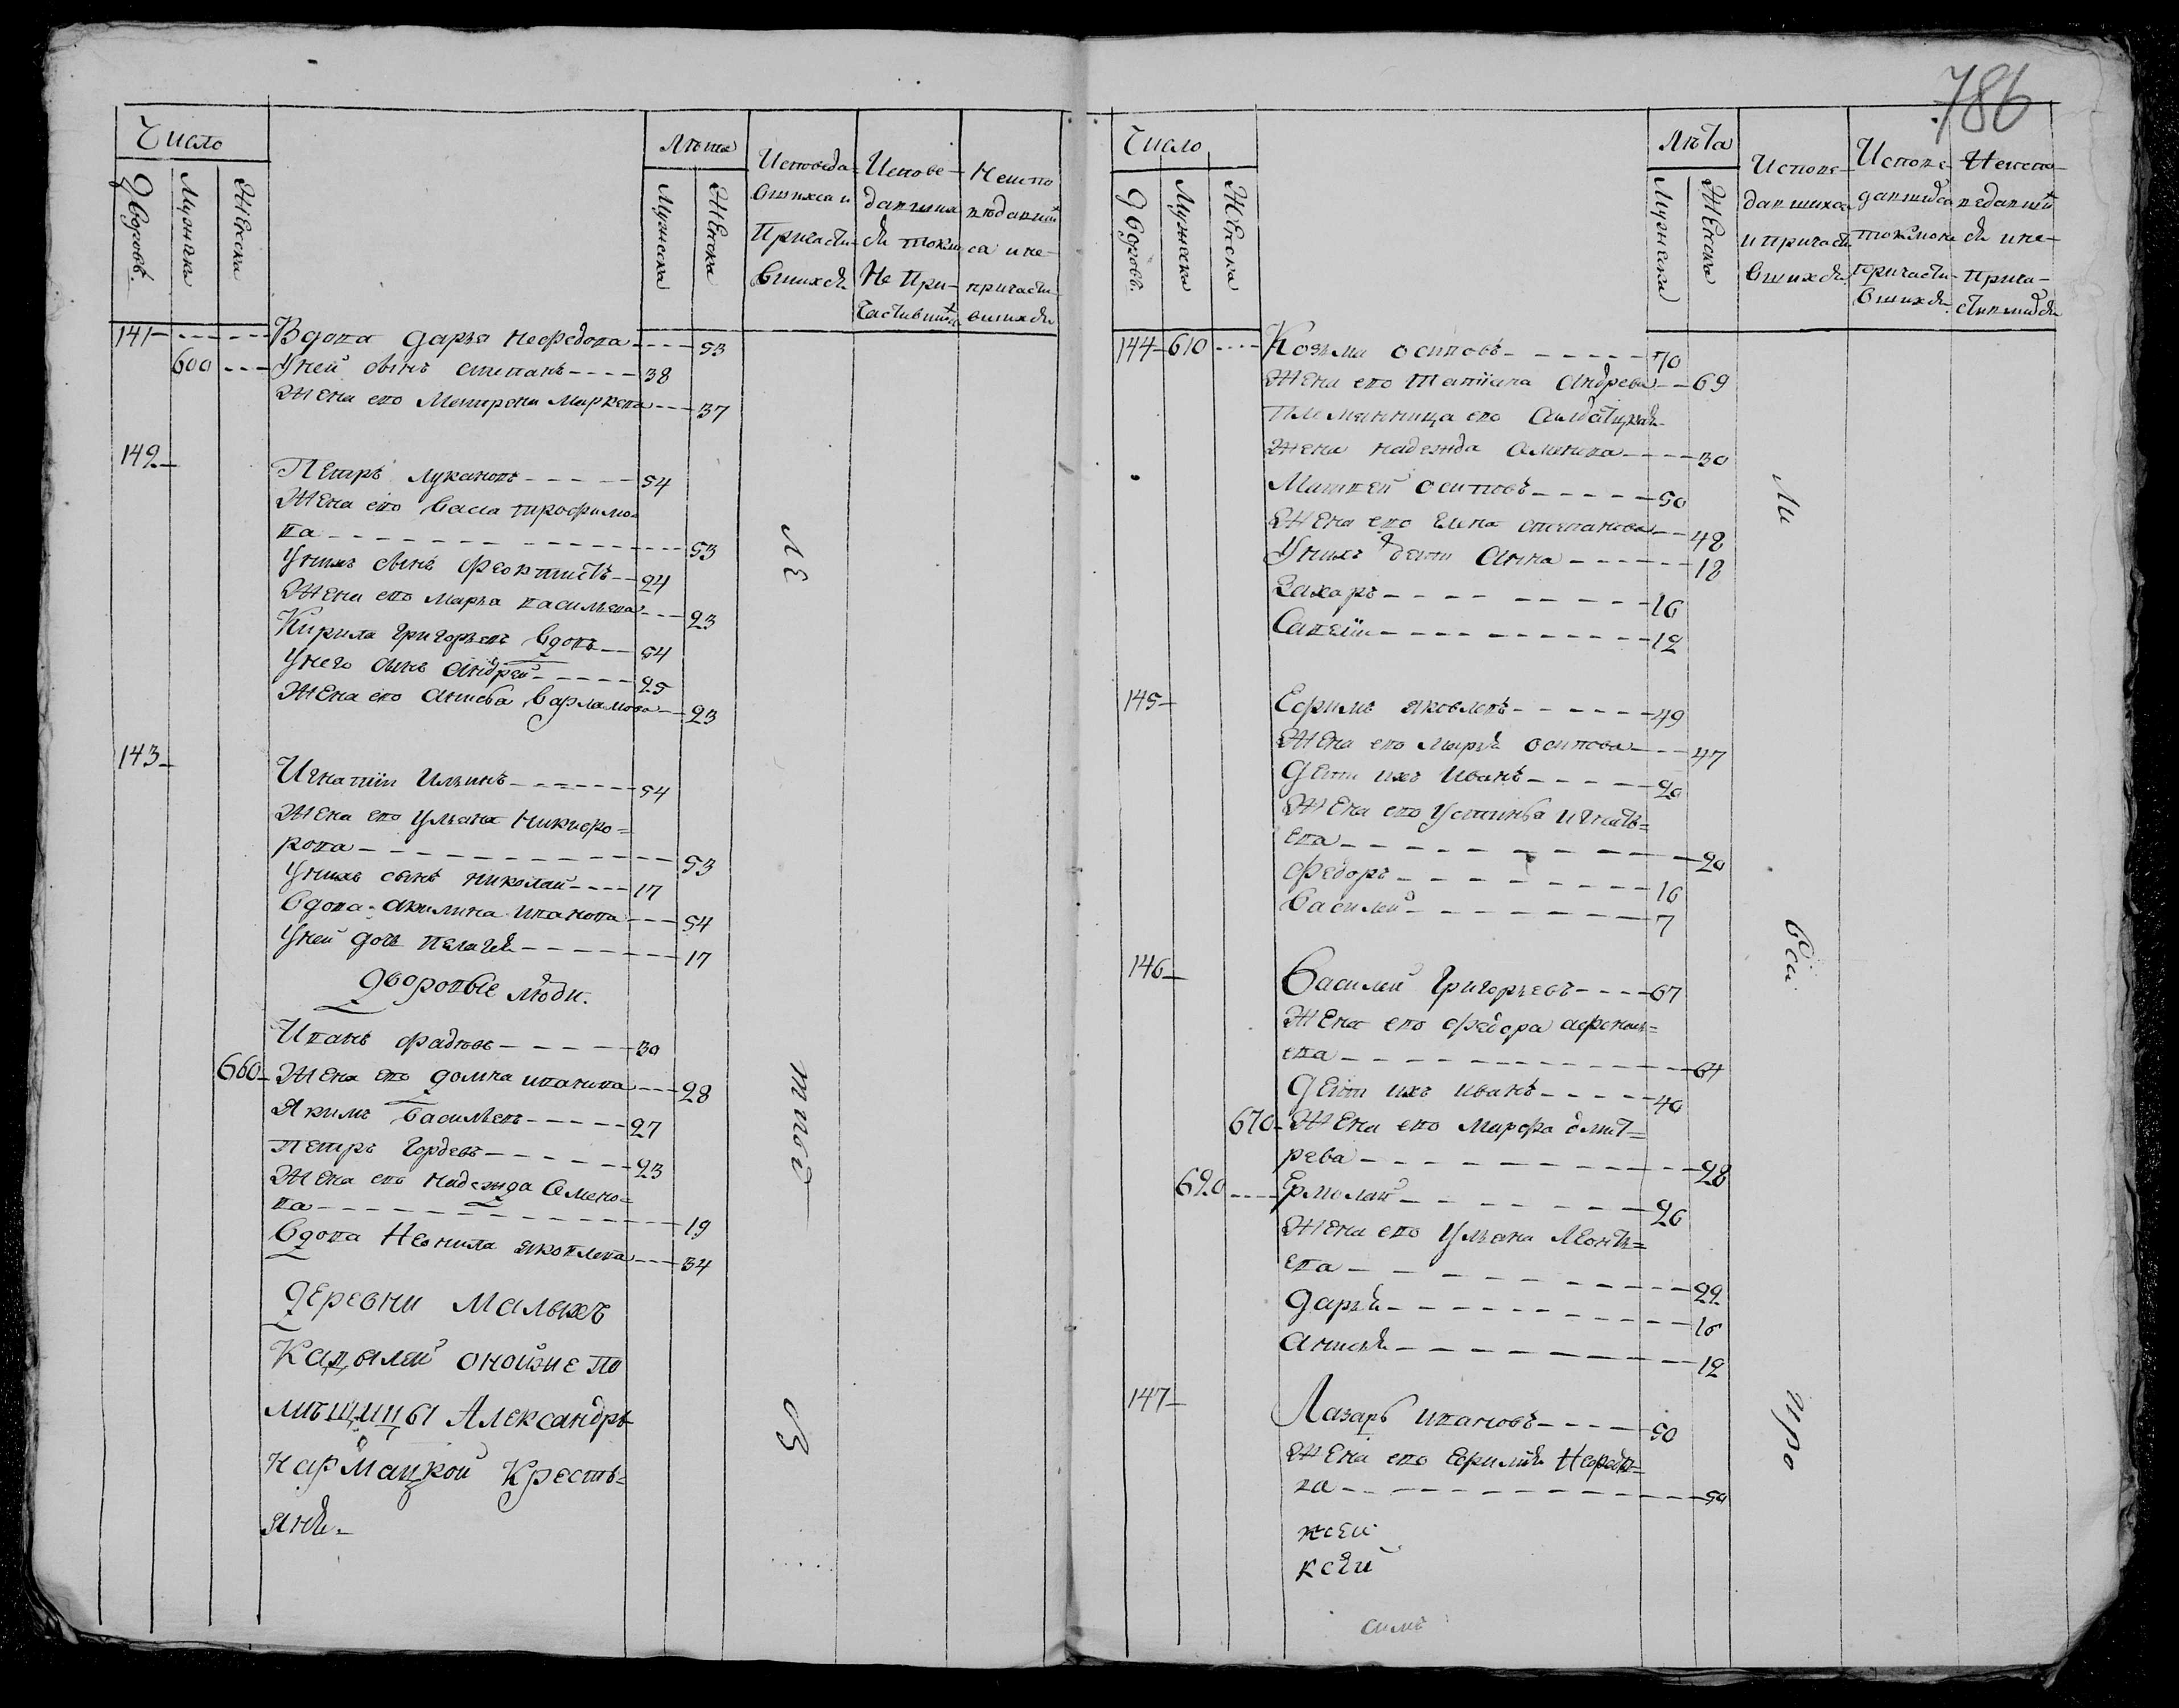 Число
Лѣта
Исповеда-
вшихся и
Причасти-
вшихся
Испове-
давших
ся токмо
Не При-
частивших
Неиспо
ведавших
ся и не-
причасти
вшихся
Дворовъ.
Мужеска
Женска
Мужеска
Женска
141 Вдова Дарья Нефедова 53
600 У ней сынъ Степанъ 38
Жена его Матрена Маркева 37
142
Петръ Лукановъ 54
Жена его Васа Трофимо-
ва 53
У нихъ сынъ Феоктистъ 24
Жена его Марья Васильева 23
Кирила Григорьевъ вдовъ 54
У него сынъ Андрей 25
Жена его Анисья Варламова 23
143
Игнатiи Ильинъ 54
Жена его Ульяна Никифо=
рова 53
У нихъ сынъ Николай 17
Вдова Акилина Иванова 54
У ней дочь Пелагея 17
Дворовые люди.
Иванъ Фадѣевъ 30
660 Жена его Домна Иванова 28
Якимъ Васильевъ 27
Петръ Гордевъ 23
Жена его Надежда Семено=
ва 19
Вдова Неонила Яковлева 34
Деревни Малыхъ
Кадылей оной же По
мѣщицы Александры
Нармацкой Кресть=
яня
786
Число
Лѣта
Испове-
давшихся
и причасти
вшихся
Испове-
давшихся
токмо не
причасти-
вшихся
Неиспо-
ведавших
ся и не-
прича-
стившихся
Дворовъ.
Мужеска
Женска
Мужеска
Женска
144 610 Козьма Осиповъ 70
Жена его Татiяна Андрева 69
Племянница его Салдатцкая
Жена Надежда Семенова 30
Матвей Осиповъ 50
Жена его Елена Степанова 48
У нихъ дети Анна 18
Захаръ 16
Савелiи 12
145
Ефимъ Яковлевъ 49
Жена его Марья Осипова 47
Дети ихъ Иванъ 20
Жена его Устинья Игнать=
ева 20
Федоръ 16
Василей 7
146
Василей Григорьевъ 67
Жена его Федора Афонась=
ева 64
Дети ихъ Иванъ 40
670 Жена его Марфа Дмит=
рева 28
620 Ермолай 26
Жена его Ульяна Леонть=
ева 22
Дарья 16
Анисья 12
147
Лазарь Ивановъ 50
Жена его Ефимiя Нефедо=
ва 50